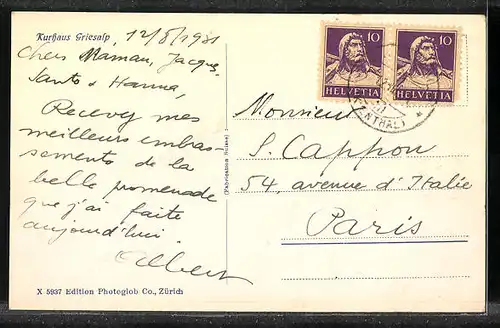 Kurhaus Griesalp
12/8/1931
Chers Maman, Jacques,
Santo & Hanna,
Recevez mes
meilleurs embras-
sements de la
belle promenade
que j'ai faite
aujourd'hui.
Albert
X 5937 Edition Photoglob Co., Zürich
(Fabrication Suisse)
10
HELVETIA
10
HELVETIA
ENTHAL)
Monsieur
S. Cappon
54, avenue d'Italie
Paris